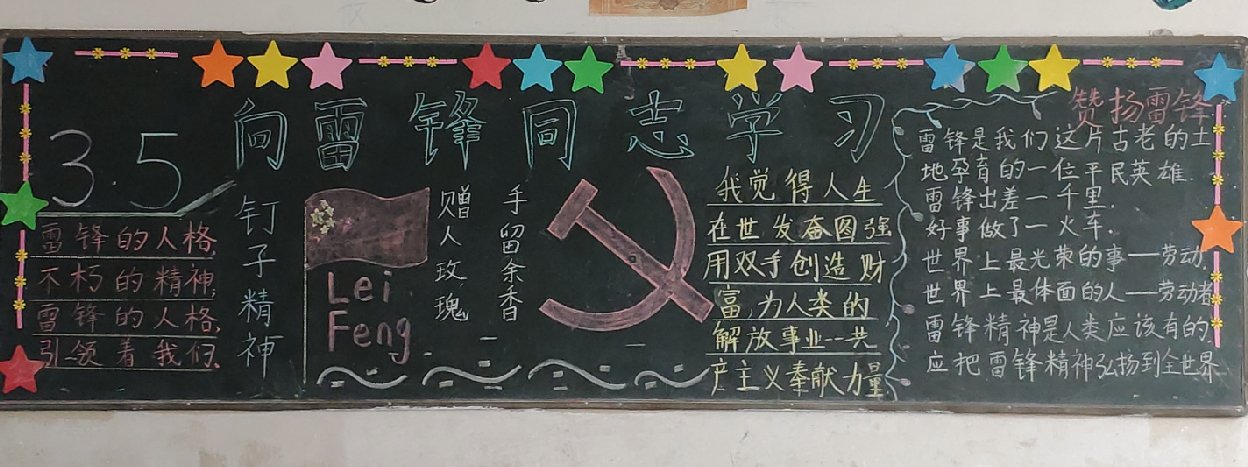 向雷锋同志学习
3.5
雷锋的人格,
不朽的精神,
雷锋的人格,
引领着我们.
钉子精神
Lei
Feng
赠人玫瑰
手留余香
我觉得人生
在世发奋图强
用双手创造财
富,为人类的
解放事业--共
产主义奉献力量
赞扬雷锋
雷锋是我们这片古老的土
地孕育的一位平民英雄
雷锋出差一千里.
好事做了一火车.
世界上最光荣的事——劳动.
世界上最体面的人——劳动者
雷锋精神是人类应该有的.
应把雷锋精神弘扬到全世界